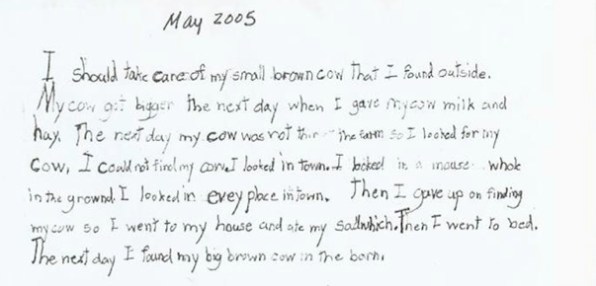 May 2005
I should take care of my small brown cow That I found outside.
My cow got bigger the next day when I gave my cow milk and
hay. The next day my cow was not the farm so I looked for my
Cow, I could not find my cow. I looked in town. I looked in a mouse whole
in the grownd. I looked in evey place in town. Then I gave up on finding
my cow so I went to my house and ate my sadnwhich. Then I went to bed.
The next day I found my big brown cow in the born.